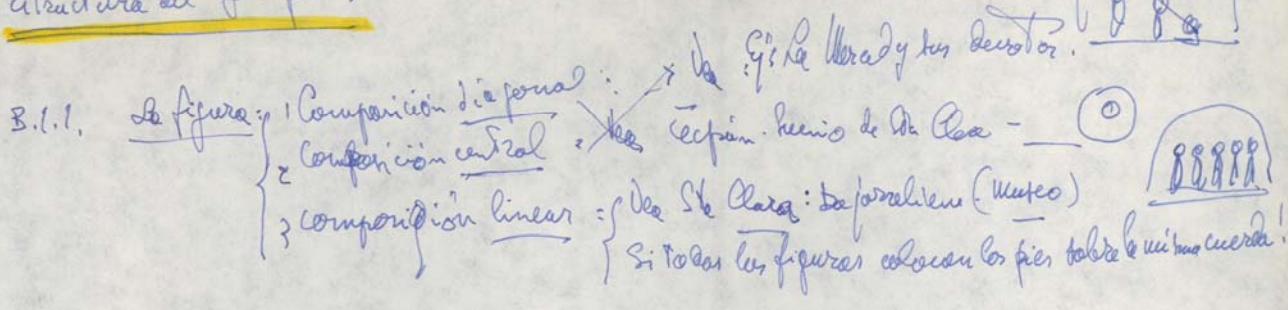 B.1.1. La figura: 1 Composición diagonal: Vea Ej: La Merced y sus devotos.
2 Composición central: Vea Sta Clara
3 composición linear: Vea Sta Clara: bajorrelieve (museo)
Si todas las figuras colocan los pies sobre la misma cuerda!